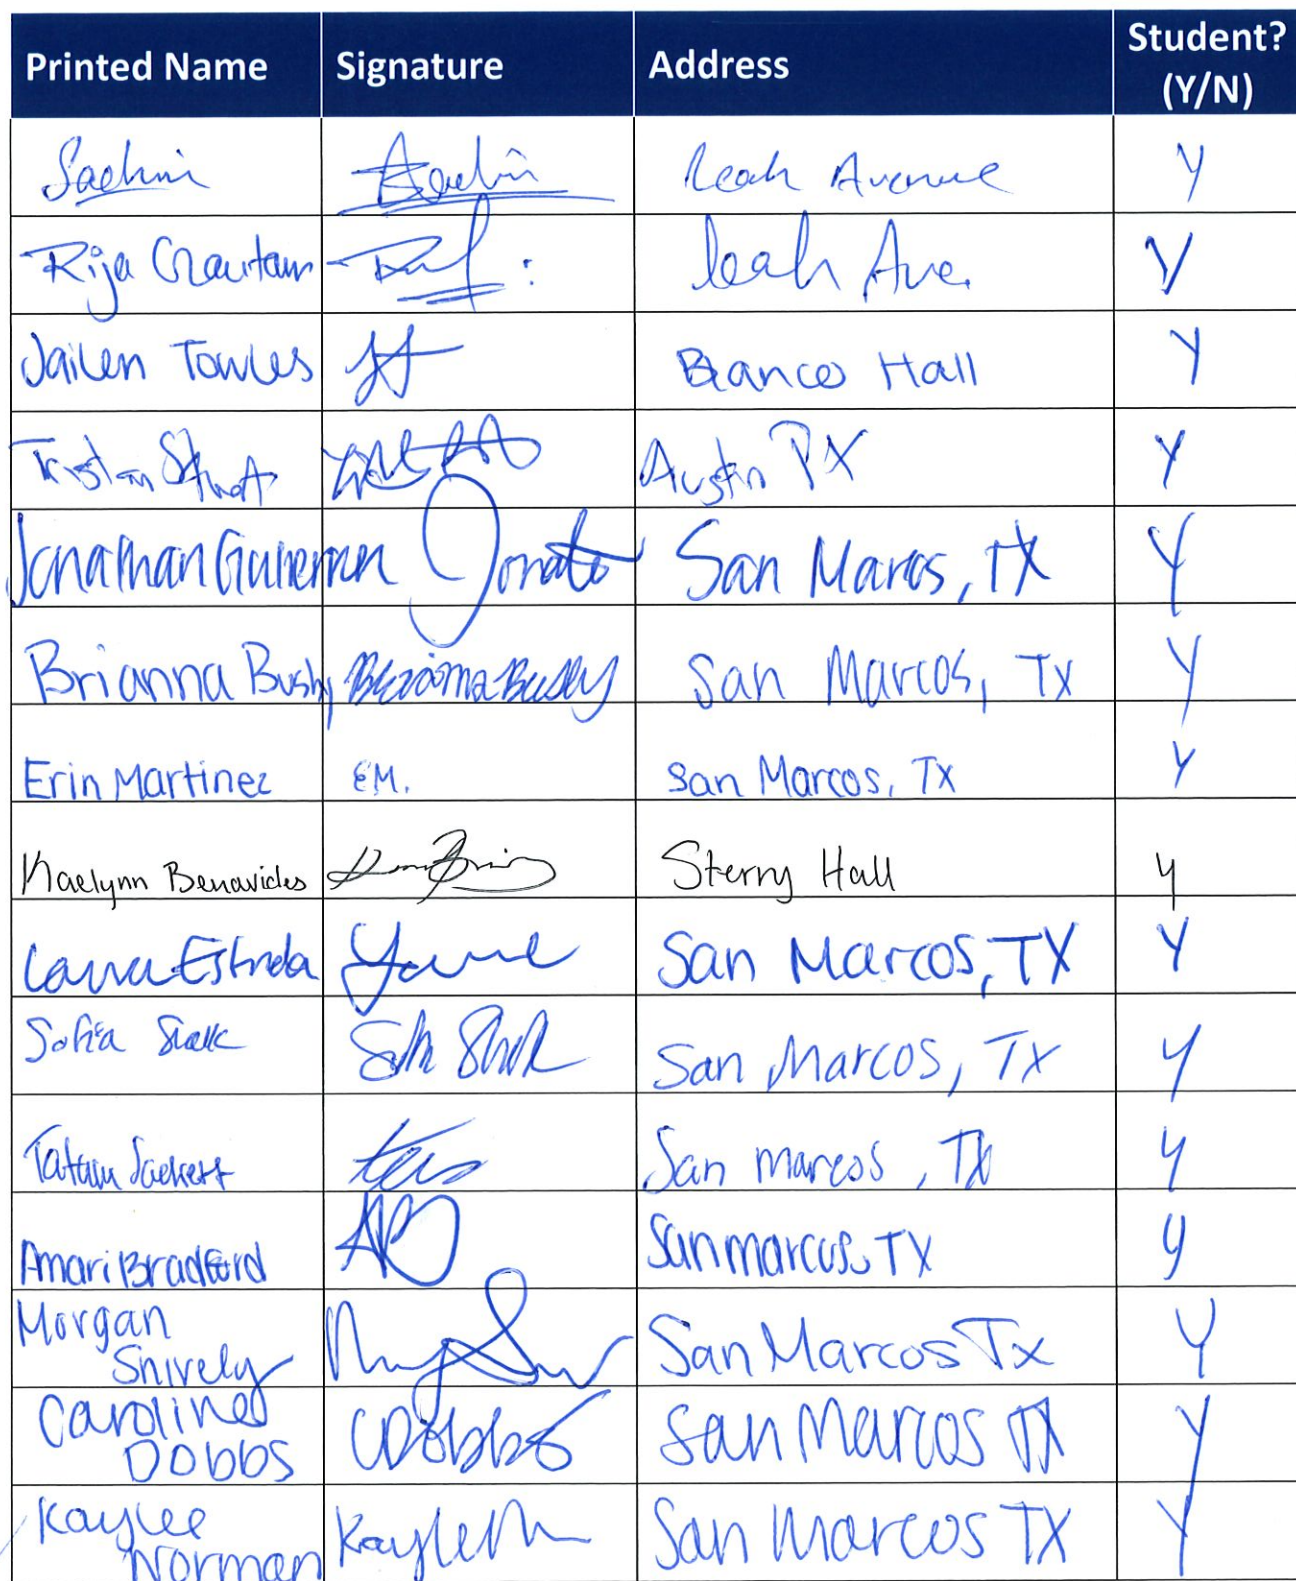 Printed Name Signature Address Student? (Y/N)
Leah Avenue Y
Rija Gautam leah Ave. Y
Jailen Towles Blanco Hall Y
Tristan Austin TX Y
Jonathan San Marcos, TX Y
Brianna Busby Brianna Busby San Marcos, Tx Y
Erin Martinez EM. San Marcos, Tx Y
Kaelynn Benavides Sterry Hall y
Estrada San Marcos, TX Y
Sofia San Marcos, Tx y
Tatum Sackett San marcos, TX y
Amari Bradford AB San marcos, TX y
Morgan
Snively San Marcos Tx Y
Caroline
Dobbs CDobbs San Marcos TX Y
Kaylee
Norman San Marcos TX Y